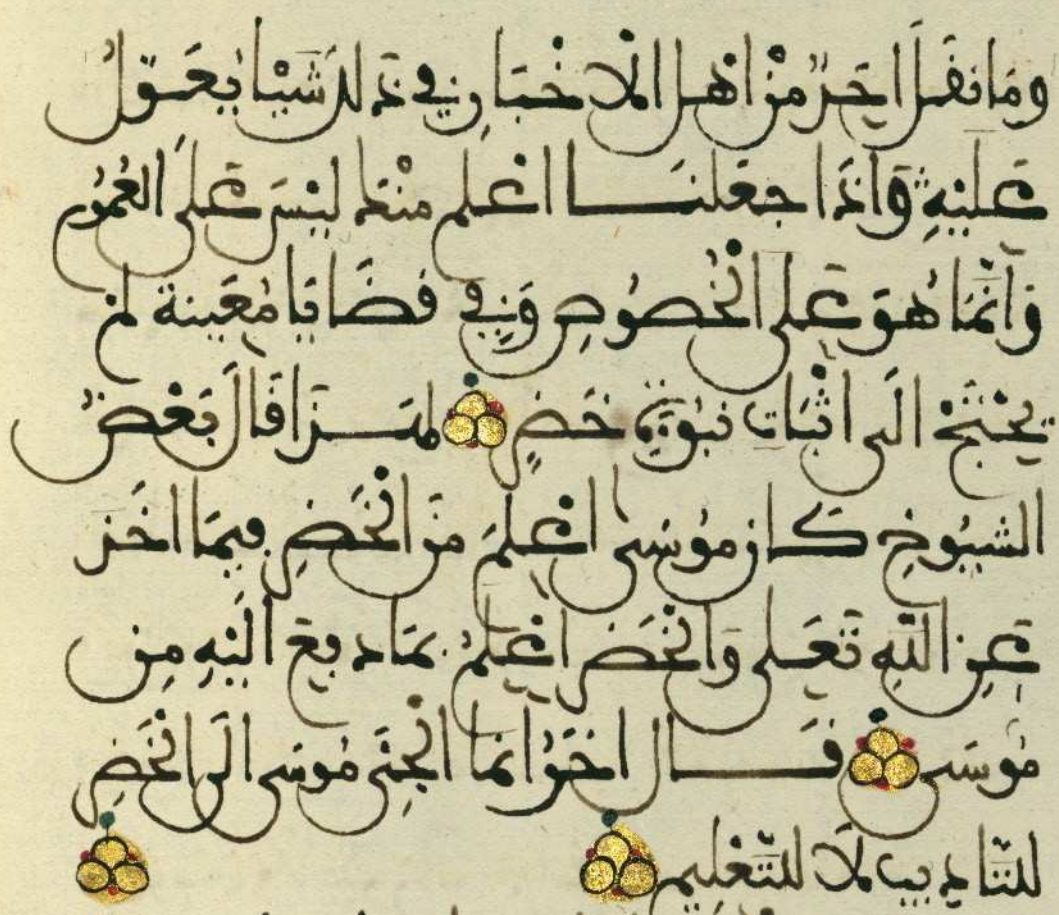 وما نقل احد من اهل الاخبار في ذلك شيئا يعول
عليه واذا جعلنا اعلم منك ليس على العموم
وانما هو على الخصوص وفي قضايا معينة لم
يحتج الى اثبات نبوة خضر لهذا قال بعض
الشيوخ كان موسى اعلم من الخضر فيما اخذ
عن الله تعلى والخضر اعلم بما دفع اليه من
موسى وقال اخر انما الجئ موسى الى الخضر
للتاديب لا للتعليم